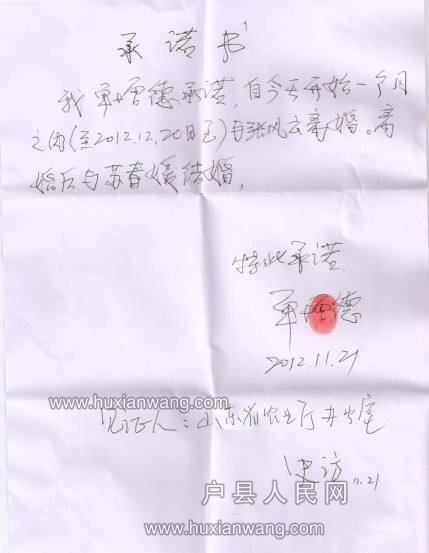 承诺书
我单增德承诺,自今天开始一个月
之内(至2012.12.20日止)与张风云离婚。离
婚后与苏春媛结婚,
特此承诺.
单增德
2012.11.21
www.huxianwang.com
见证人:山东省农业厅办公室
史访 11.21
户县人民网
www.huxianwang.com